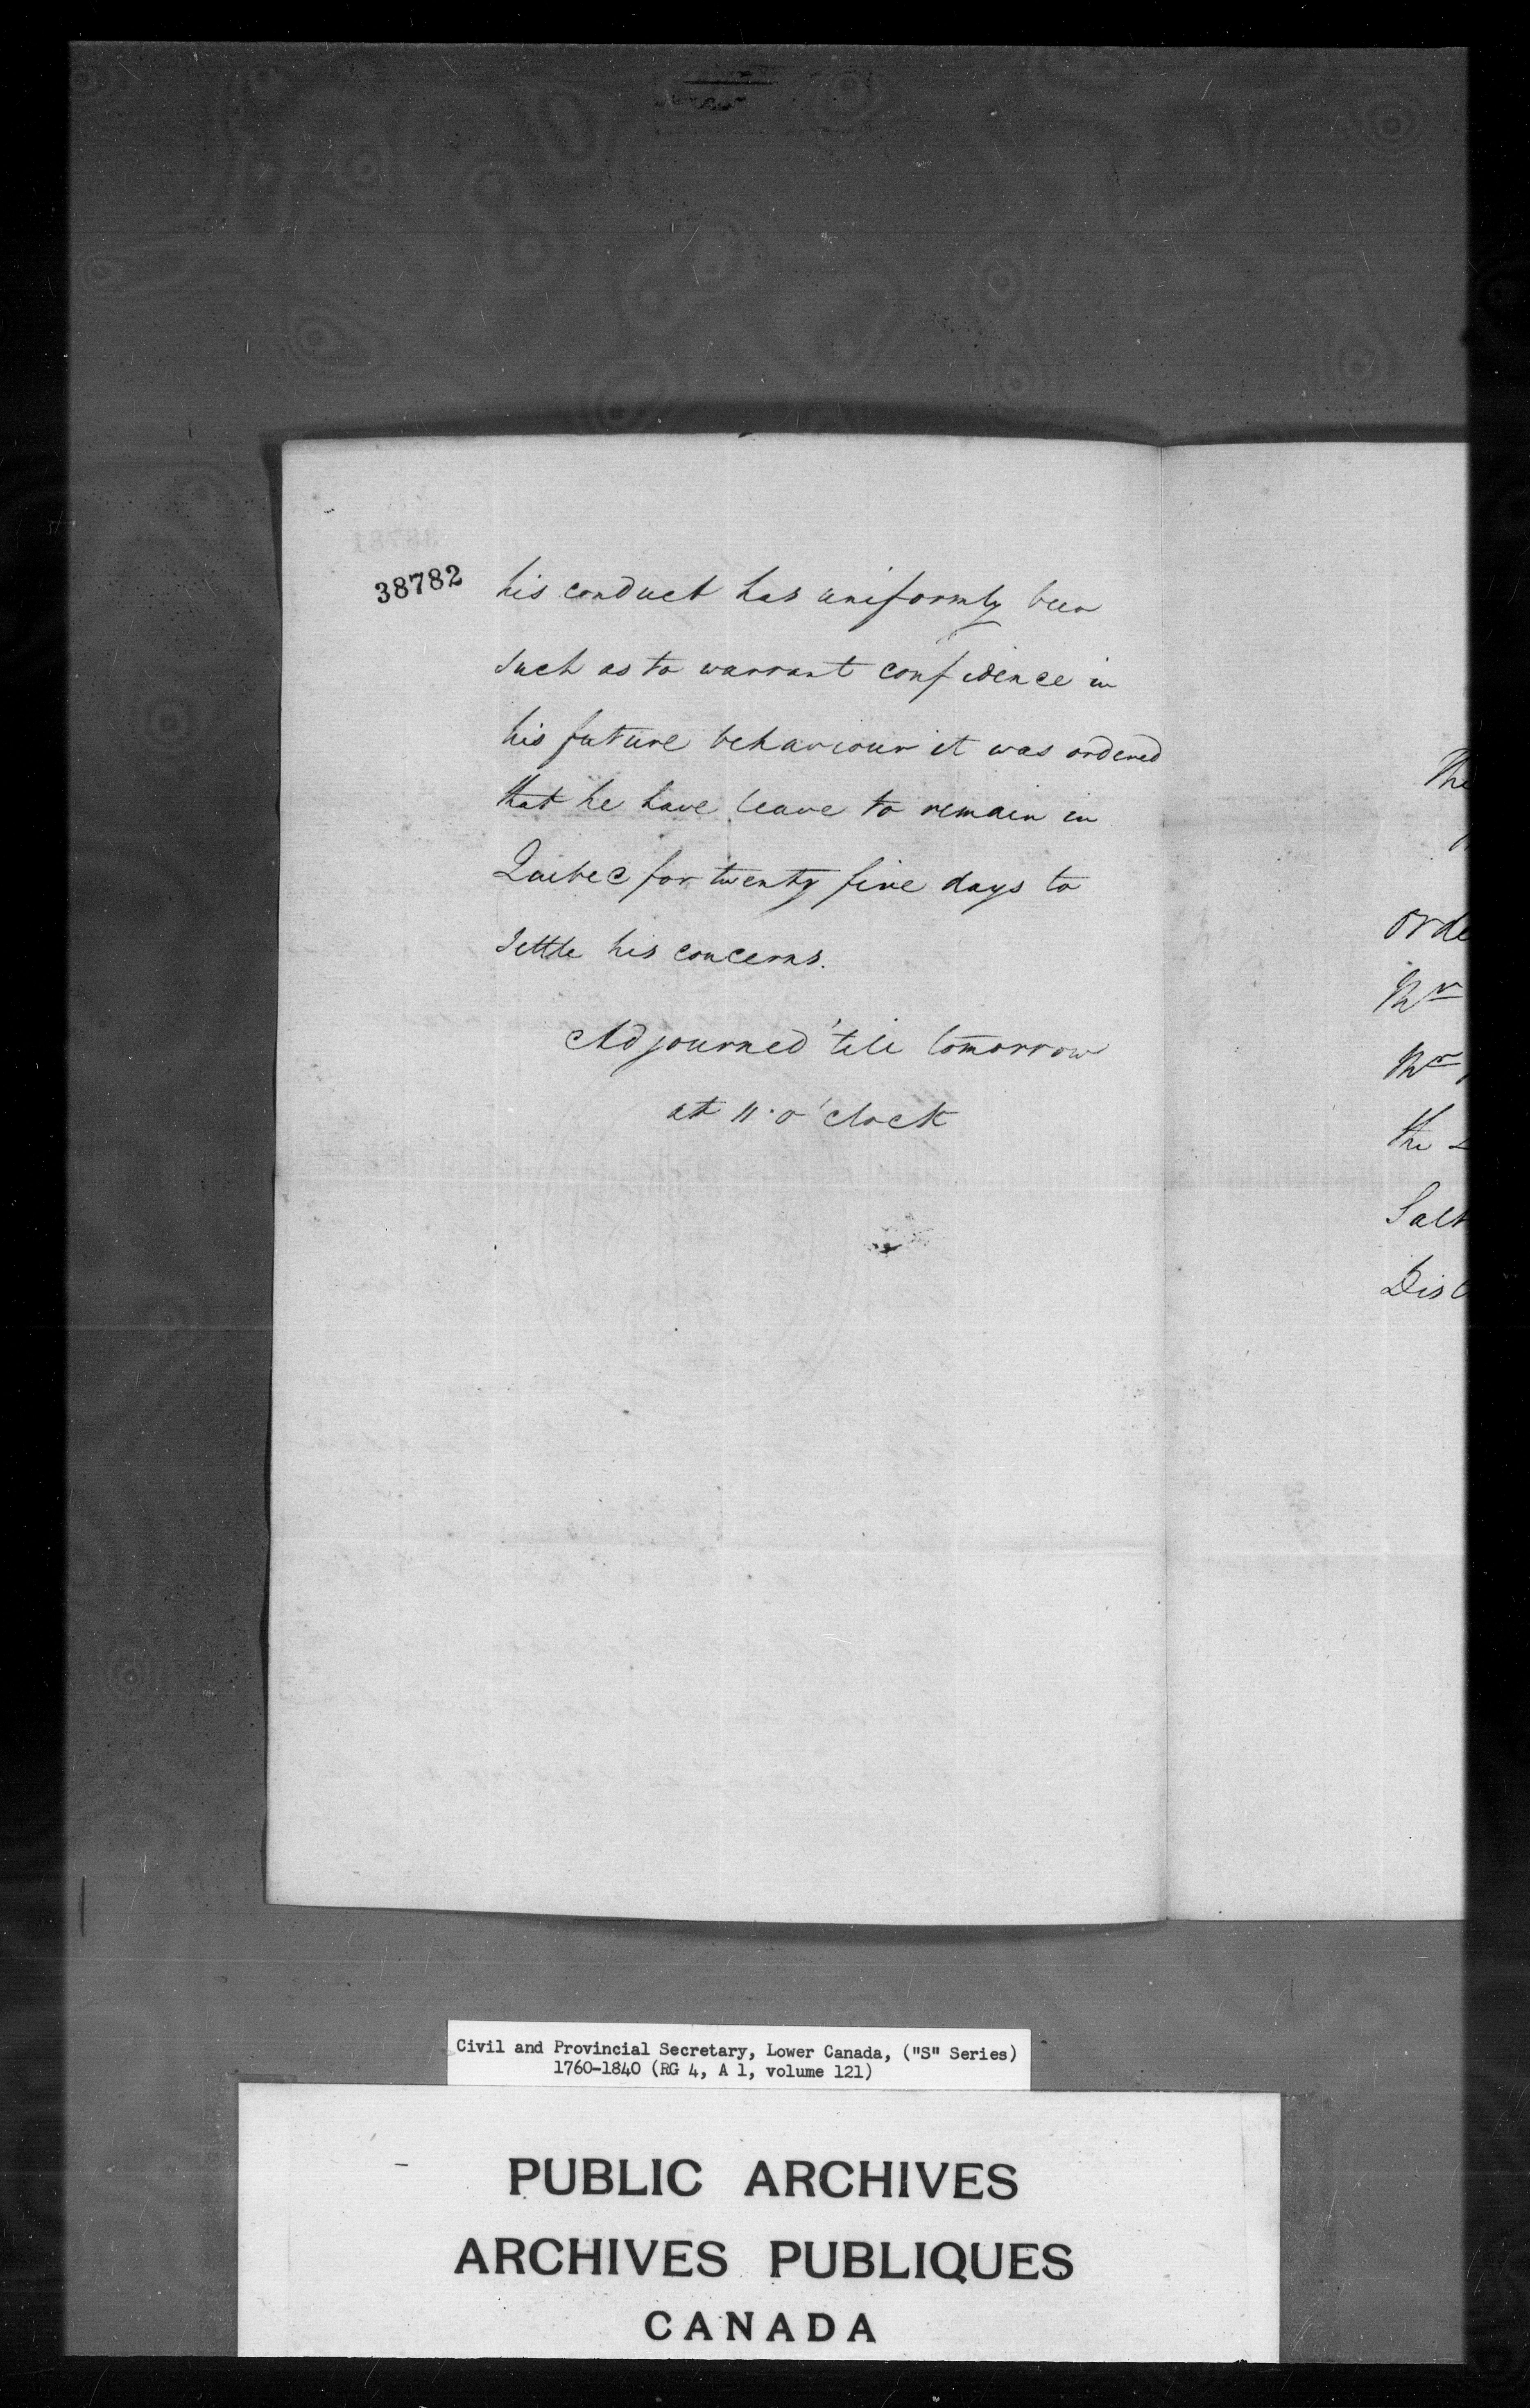 38782
his conduct has uniformly been
such as to warrant confidence in
his future behaviour it was ordered
that he have leave to remain in
Quebec for twenty five days to
settle his concerns.
Adjourned 'till tomorrow
at 11 o'clock
The
orde
Mr
Mr
the
Salt
Dist
Civil and Provincial Secretary, Lower Canada, ("S" Series)
1760-1840 (RG 4, A 1, volume 121)
PUBLIC ARCHIVES
ARCHIVES PUBLIQUES
CANADA